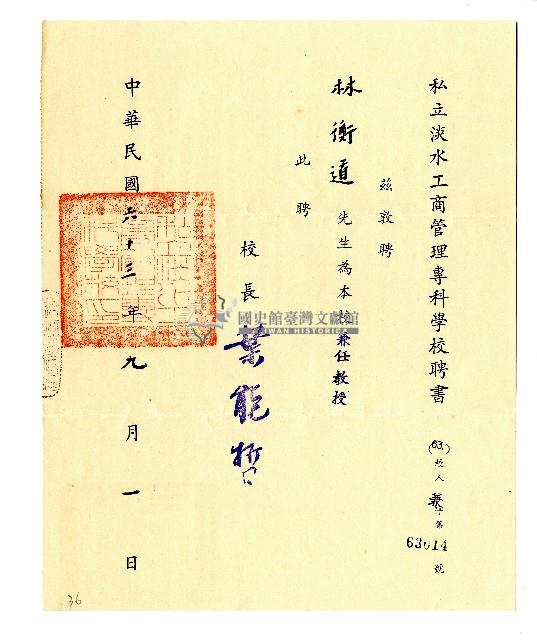 私立淡水工商管理專科學校聘書
(63)校人兼字第
63014
號
茲敦聘
林衡道先生為本校兼任教授
此聘
校長葉能哲
中華民國六十三年九月一日
國史館臺灣文獻館
TAIWAN HISTORICA
36